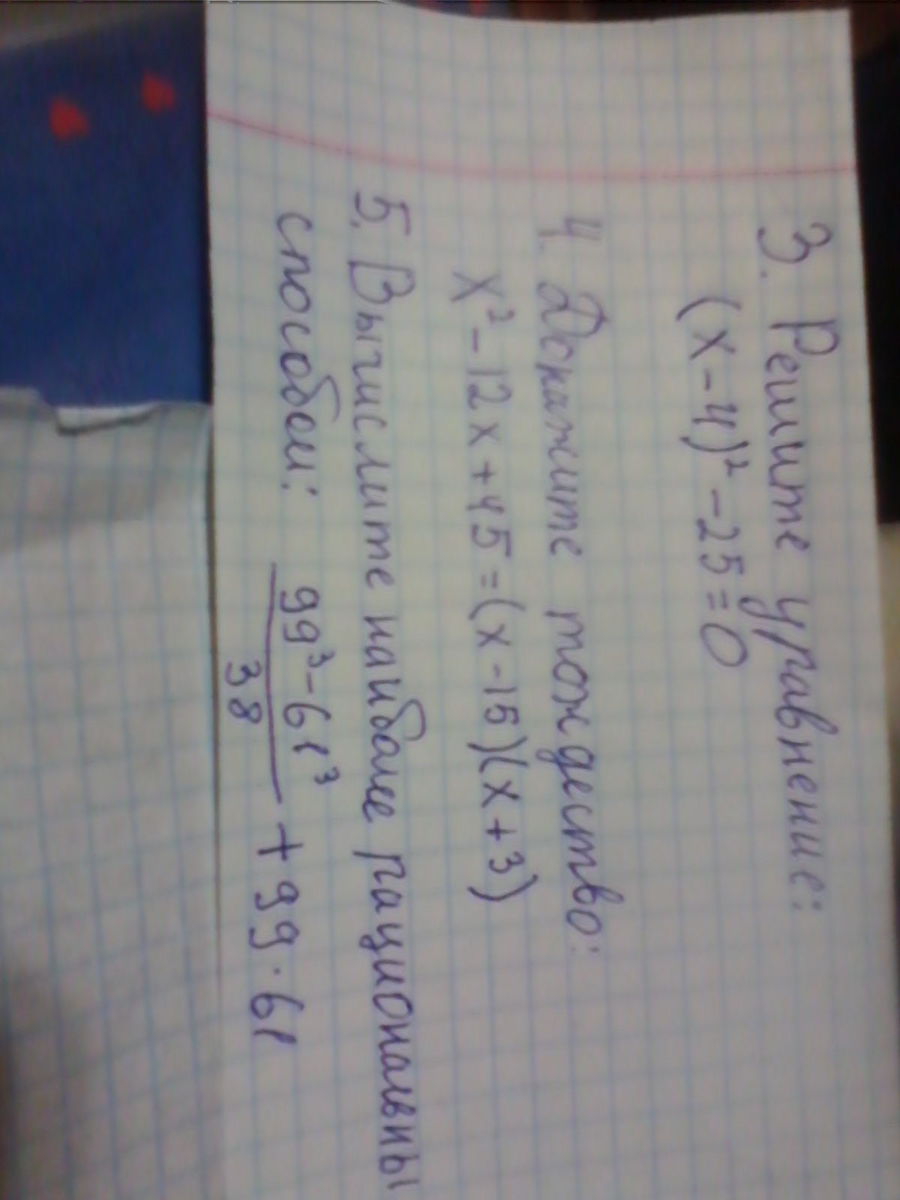 3. Решите уравнение:
(x-4)²-25=0
4. Докажите тождество:
x²-12x+45=(x-15)(x+3)
5. Вычислите наиболее рациональны
способом: (99³-61³)/38 + 99·61